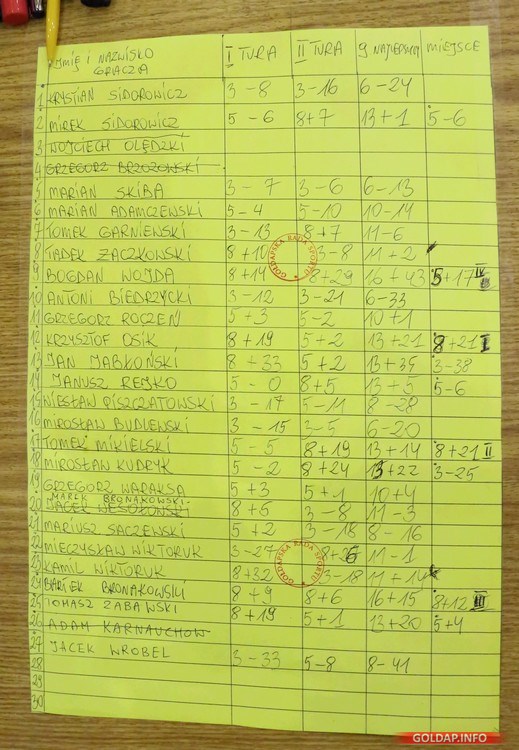 IMIĘ I NAZWISKO GRACZA I TURA II TURA 9 NAJLEPSZYCH MIEJSCE
1 KRYSTIAN SIDOROWICZ 3-8 3-16 6-24
2 MIREK SIDOROWICZ 5-6 8+7 13+1 5-6
3 WOJCIECH OLĘDZKI
4 GRZEGORZ BRZOZOWSKI
5 MARIAN SKIBA 3-7 3-6 6-13
6 MARIAN ADAMCZEWSKI 5-4 5-10 10-14
7 TOMEK GARNIEWSKI 3-13 8+7 11-6
8 TADEK ZACZKOWSKI 8+10 3-8 11+2
9 BOGDAN WOJDA 8+14 8+29 16+43 5+17 IV
10 ANTONI BIEDRZYCKI 3-12 3-21 6-33
11 GRZEGORZ ROCZEŃ 5+3 5-2 10+1
12 KRZYSZTOF OSIK 8+19 5+2 13+21 8+21 I
13 JAN JABŁOŃSKI 8+33 5+2 13+35 3-38
14 JANUSZ REJKO 5-0 8+5 13+5 5-6
15 WIESŁAW PISZCZATOWSKI 3-17 5-11 8-28
16 MIROSŁAW BUDLEWSKI 3-15 3-5 6-20
17 TOMEK MIKIELSKI 5-5 8+19 13+14 8+21 II
18 MIROSŁAW KUDRYK 5-2 8+24 13+22 3-25
19 GRZEGORZ WARAKSA 5+3 5+1 10+4
MAREK BRONAKOWSKI
20 JACEK WESOŁOWSKI 8+5 3-8 11-3
21 MARIUSZ SACZEWSKI 5+2 3-18 8-16
22 MIECZYSŁAW WIKTORUK 3-27 8+26 11-1
23 KAMIL WIKTORUK 8+32 3-18 11+14
24 BARTEK BRONAKOWSKI 8+9 8+6 16+15 8+12 III
25 TOMASZ ZABAWSKI 8+19 5+1 13+20 5+4
26 ADAM KARNAUCHOW
27 JACEK WRÓBEL 3-33 5-8 8-41
28
29
30
GOŁDAPSKA RADA SPORTU
GOŁDAPSKA RADA SPORTU
GOLDAP.INFO